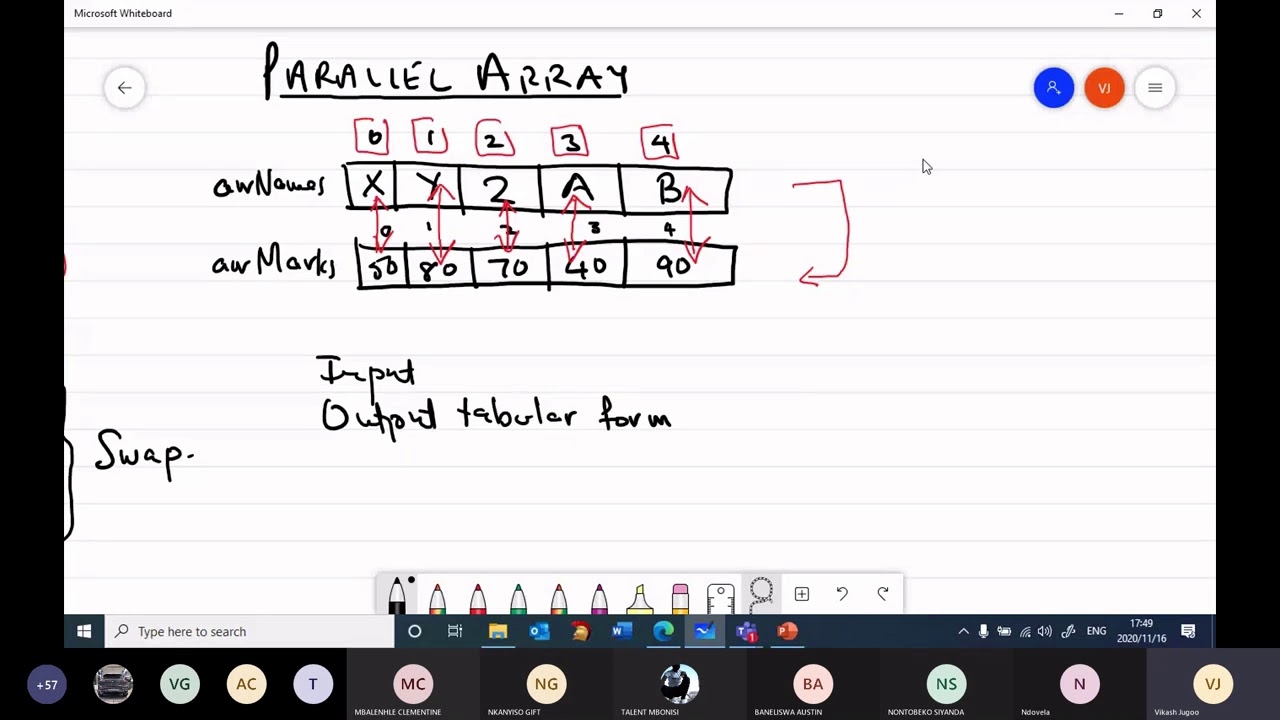 Microsoft Whiteboard
PARALLEL ARRAY
VJ
0 1 2 3 4
arrNames X Y Z A B
0 1 2 3 4
arrMarks 50 80 70 40 90
Input
Output tabular form
Swap.
Type here to search
ENG
17:49
2020/11/16
+57 VG AC T MC NG BA NS N VJ
MBALENHLE CLEMENTINE NKANYISO GIFT TALENT MBONISI BANELISWA AUSTIN NONTOBEKO SIYANDA Ndovela Vikash Jugoo